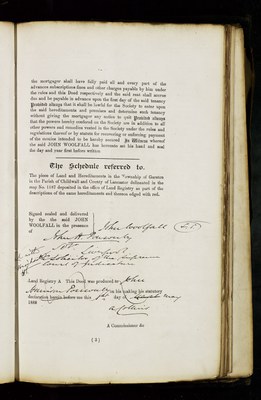 the mortgagor shall have fully paid all and every part of the
advances subscriptions fines and other charges payable by him under
the rules and this Deed respectively and the said rent shall accrue
due and be payable in advance upon the first day of the said tenancy
Provided always that it shall be lawful for the Society to enter upon
the said hereditaments and premises and determine such tenancy
without giving the mortgagor any notice to quit Provided always
that the powers hereby conferred on the Society are in addition to all
other powers and remedies vested in the Society under the rules and
regulations thereof or by statute for concerning or enforcing payment
of the moneys intended to be hereby secured In Witness whereof
the said JOHN WOOLFALL has hereunto set his hand and seal
the day and year first before written
The Schedule referred to.
The piece of Land and Hereditaments in the Township of Garston
in the Parish of Childwall and County of Lancaster delineated in the
map No. 1167 deposited in the office of Land Registry as part of the
descriptions of the same hereditaments and thereon edged with red.
Signed sealed and delivered
by the the said JOHN
WOOLFALL in the presence
of
John Woolfall
John H. Ponsonby
Liverpool
Solicitor of the Supreme
Court of Judicature
Land Registry A This Deed was produced to John
Harrison Ponsonby in his making his statutory
declaration herein before me this day of May
188
A Commissioner &c
( 3 )